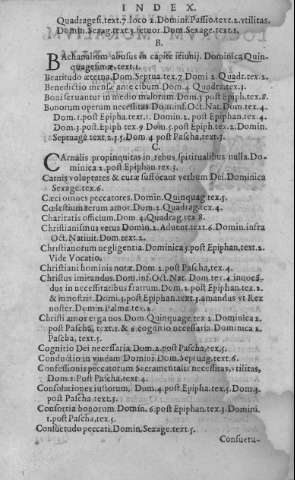 INDEX.
Quadrages.text.7.loco 2.Domini.Passio.text.2.vtilitas.
Domin.Sexag.text.3.feruor.Dom.Sexage.text.1.
B.
Bachanalium abusus in capite ieiunij. Dominica Quin-
quagesimæ.text.1.
Beatitudo æterna Dom.Septua.tex.7 Domi 2.Quadr.tex.2.
Benedictio mensæ ante cibum Dom.4 Quadra.tex.3.
Boni seruantur in medio malorum Dom.5 post Epiph.tex.8.
Bonorum operum necessitas Dom.inf.Oct.Nat.Dom.tex.4.
Dom.1.post Epipha.text.1. Domin.2.post Epiphan.tex.4.
Dom.3.post Epiph tex 9 Dom 5.post Epiph.tex.2.Domin.
Septuage text.2.3.5.Dom 4 post Pascha.text.5.
C.
Carnalis propinquitas in rebus spiritualibus nulla.Do-
minica 2.post Epiphan.tex.3.
Carnis voluptates & curæ suffocant verbum Dei.Dominica
Sexage.tex.6.
Cæci omnes peccatores Domin.Quinquag tex.5.
Cœlestium rerum amor.Dom.2.Quadrag.tex.4.
Charitatis officium.Dom.4.Quadrag.tex 8.
Christianismus verus Domin.2.Aduent.text.6.Domin.infra
Oct.Natiuit.Dom.text.2.
Christianorum negligentia.Dominica 3.post Epiphan.tex.2.
Vide Vocatio.
Christiani hominis nota.Dom 2.post Pascha,tex.4.
Christus imitandus.Dom.inf.Oct.Nat.Dom.tex.4 inuocã-
dus in necessitatibus fratrum.Dom.2.post Epiphan.tex.2.
& in nostris.Domi.3.post Epiphan.text 3.amandus vt Rex
noster.Domin.Palma.tex.2.
Christi amor erga nos Dom.Quinquage tex 2.Dominica 2.
post Pascha, text.2. & 6 cognitio necessaria Dominica 2.
Pascha, text.5.
Cognitio Dei necessaria Dom.2.post Pascha,tex.5.
Conductio in vineam Domini Dom.Septuag.text.6.
Confessionis peccatorum Sacramentalis necessitas,vtilitas,
Dom.1 Post Pascha,text.4.
Consolationes iustorum, Dom.4.post Epipha.tex 5.Dom 3.
post Pascha.text.5.
Consortia bonorum Domin. 6.post Epiphan.tex.3 Domini.
1.post Pascha,tex.3.
Consuetudo peccati.Domin.Sexage.text.5.
Consuetu-